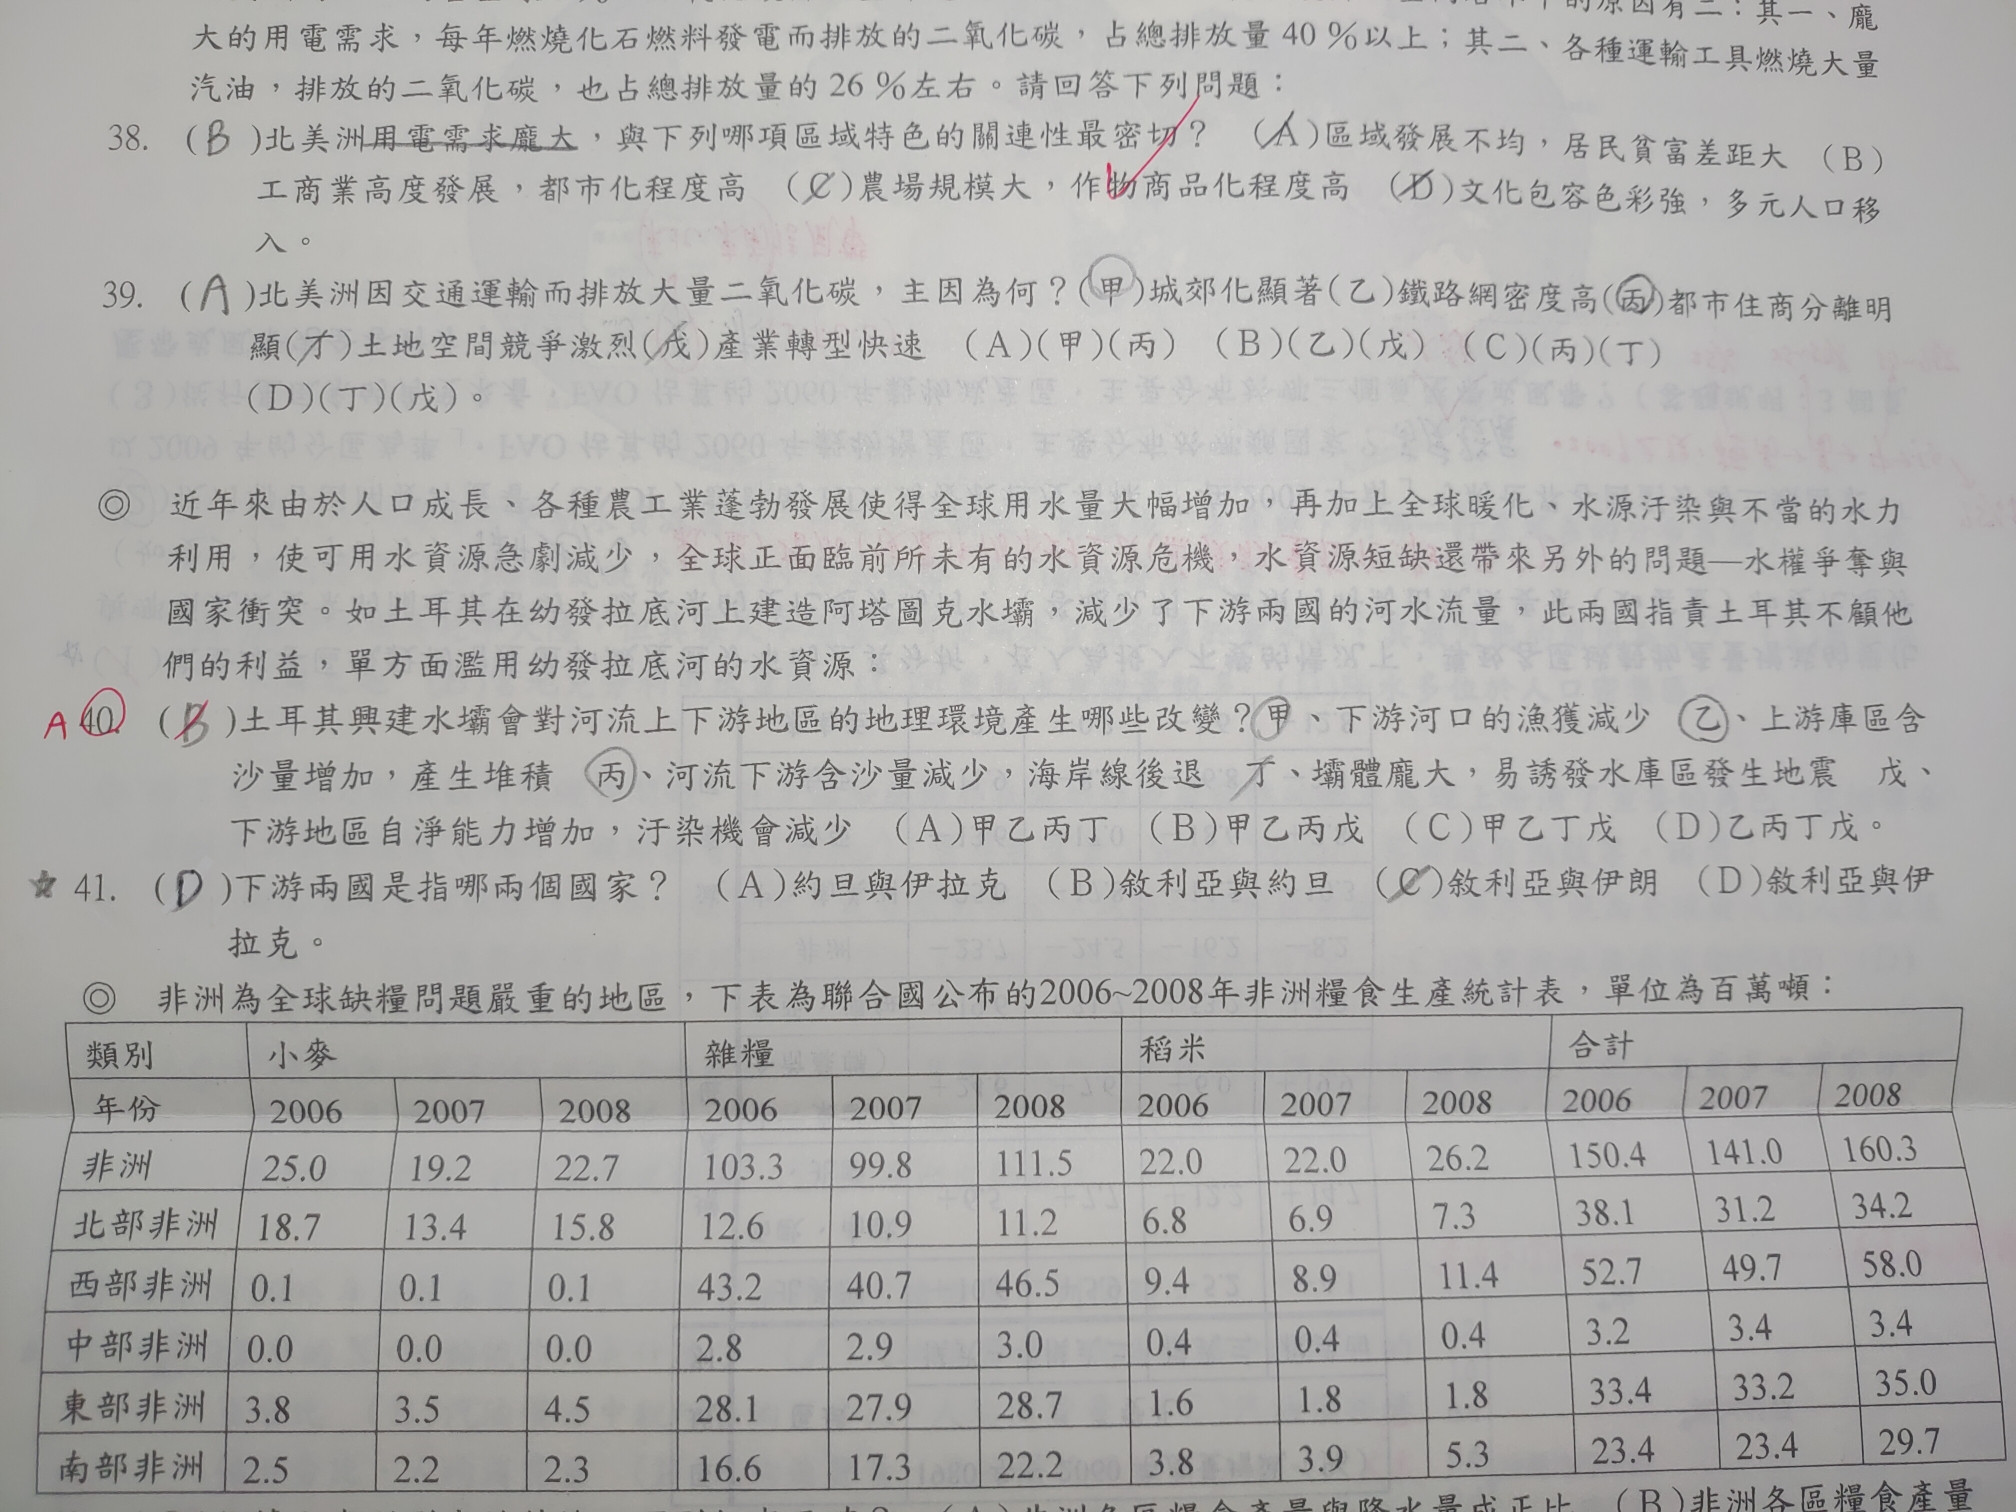 的原因有二：其一、龐
大的用電需求，每年燃燒化石燃料發電而排放的二氧化碳，占總排放量 40 %以上；其二、各種運輸工具燃燒大量
汽油，排放的二氧化碳，也占總排放量的 26 %左右。請回答下列問題：
38. (B)北美洲用電需求龐大，與下列哪項區域特色的關連性最密切？ (A)區域發展不均，居民貧富差距大 (B)
工商業高度發展，都市化程度高 (C)農場規模大，作物商品化程度高 (D)文化包容色彩強，多元人口移
入。
39. (A)北美洲因交通運輸而排放大量二氧化碳，主因為何？(甲)城郊化顯著(乙)鐵路網密度高(丙)都市住商分離明
顯(丁)土地空間競爭激烈(戊)產業轉型快速 (A)(甲)(丙) (B)(乙)(戊) (C)(丙)(丁)
(D)(丁)(戊)。
◎ 近年來由於人口成長、各種農工業蓬勃發展使得全球用水量大幅增加，再加上全球暖化、水源汙染與不當的水力
利用，使可用水資源急劇減少，全球正面臨前所未有的水資源危機，水資源短缺還帶來另外的問題—水權爭奪與
國家衝突。如土耳其在幼發拉底河上建造阿塔圖克水壩，減少了下游兩國的河水流量，此兩國指責土耳其不顧他
們的利益，單方面濫用幼發拉底河的水資源：
A 40. (B)土耳其興建水壩會對河流上下游地區的地理環境產生哪些改變？甲、下游河口的漁獲減少 乙、上游庫區含
沙量增加，產生堆積 丙、河流下游含沙量減少，海岸線後退 丁、壩體龐大，易誘發水庫區發生地震 戊、
下游地區自淨能力增加，汙染機會減少 (A)甲乙丙丁 (B)甲乙丙戊 (C)甲乙丁戊 (D)乙丙丁戊。
☆ 41. (D)下游兩國是指哪兩個國家？ (A)約旦與伊拉克 (B)敘利亞與約旦 (C)敘利亞與伊朗 (D)敘利亞與伊
拉克。
◎ 非洲為全球缺糧問題嚴重的地區，下表為聯合國公布的2006~2008年非洲糧食生產統計表，單位為百萬噸：
類別 小麥 雜糧 稻米 合計
年份 2006 2007 2008 2006 2007 2008 2006 2007 2008 2006 2007 2008
非洲 25.0 19.2 22.7 103.3 99.8 111.5 22.0 22.0 26.2 150.4 141.0 160.3
北部非洲 18.7 13.4 15.8 12.6 10.9 11.2 6.8 6.9 7.3 38.1 31.2 34.2
西部非洲 0.1 0.1 0.1 43.2 40.7 46.5 9.4 8.9 11.4 52.7 49.7 58.0
中部非洲 0.0 0.0 0.0 2.8 2.9 3.0 0.4 0.4 0.4 3.2 3.4 3.4
東部非洲 3.8 3.5 4.5 28.1 27.9 28.7 1.6 1.8 1.8 33.4 33.2 35.0
南部非洲 2.5 2.2 2.3 16.6 17.3 22.2 3.8 3.9 5.3 23.4 23.4 29.7
(A)非洲各區糧食產量與降水量成正比 (B)非洲各區糧食產量